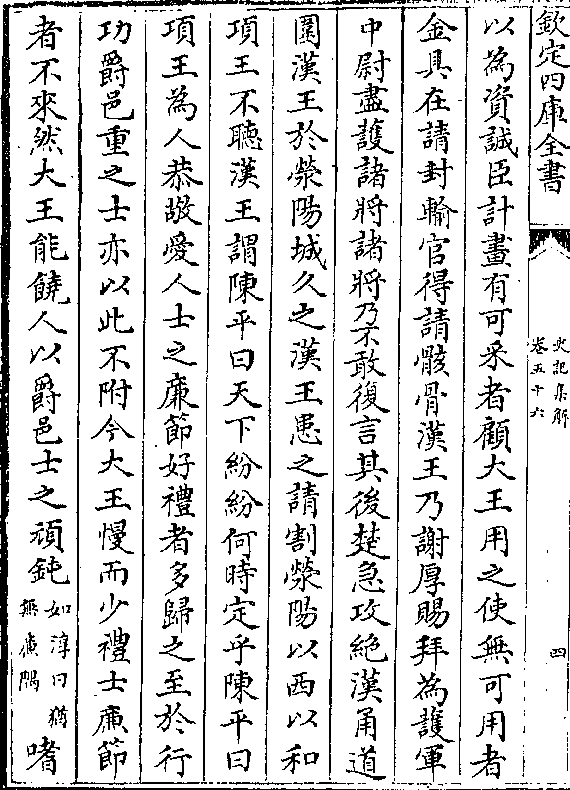 欽定四庫全書
史記集解
卷五十六
四
以為資誠臣計畫有可采者顧大王用之使無可用者
金具在請封輸官得請骸骨漢王乃謝厚賜拜為護軍
中尉盡護諸將諸將乃不敢復言其後楚急攻絶漢甬道
圍漢王於滎陽城久之漢王患之請割滎陽以西以和
項王不聽漢王謂陳平曰天下紛紛何時定乎陳平曰
項王為人恭敬愛人士之廉節好禮者多歸之至於行
功爵邑重之士亦以此不附今大王慢而少禮士廉節
者不來然大王能饒人以爵邑士之頑鈍如淳曰猶無㢘隅嗜